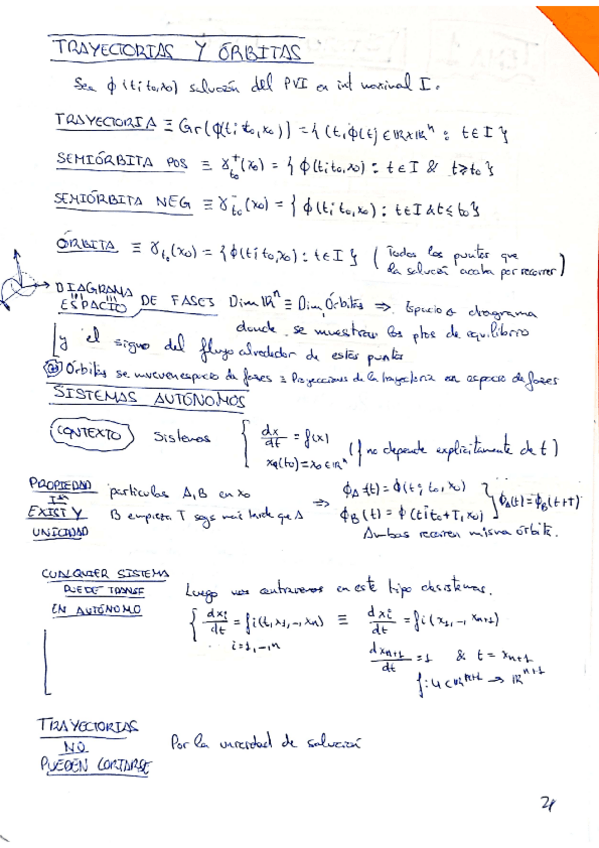 TRAYECTORIAS Y ÓRBITAS
Sea ϕ(t;t0,x0) solución del PVI en int maximal I.
TRAYECTORIA ≡ Gr(ϕ(t;t0,x0)) = {(t,ϕ(t)) ∈ ℝxℝⁿ : t∈I}
SEMIÓRBITA POS ≡ γ⁺t0(x0) = {ϕ(t;t0,x0) : t∈I & t≥t0}
SEMIÓRBITA NEG ≡ γ⁻t0(x0) = {ϕ(t;t0,x0) : t∈I & t≤t0}
ÓRBITA ≡ γt0(x0) = {ϕ(t;t0,x0) : t∈I} (Todos los puntos que la solución acaba por recorrer)
DIAGRAMA
ESPACIO DE FASES Dim ℝⁿ ≡ Dim Órbitas ⇒ Espacio o diagrama
donde se muestran los ptos de equilibrio
y el signo del flujo alrededor de estos puntos
Órbitas se mueven espacio de fases ≡ Proyecciones de la trayectoria en espacio de fases
SISTEMAS AUTÓNOMOS
CONTEXTO Sistemas { dx/dt = f(x) (f no depende explícitamente de t)
x(t0) = x0 ∈ ℝⁿ
PROPIEDAD
EXIST Y
UNICIDAD
partículas A,B en x0 ⇒ ϕA(t) = ϕ(t;t0,x0) } ϕA(t) = ϕB(t+T)
B empieza T segs más tarde que A ϕB(t) = ϕ(t;t0+T,x0)
Ambas recorren misma órbita.
CUALQUIER SISTEMA
PUEDE TRANSF
EN AUTÓNOMO
Luego nos centraremos en este tipo de sistemas.
{ dxi/dt = fi(t,x1,-,xn) ≡ dxi/dt = fi(x1,-,xn+1)
i=1,-,n
dxn+1/dt = 1 & t = xn+1
f: U⊂ℝⁿ⁺¹ → ℝⁿ⁺¹
TRAYECTORIAS
NO
PUEDEN CORTARSE
Por la unicidad de solución